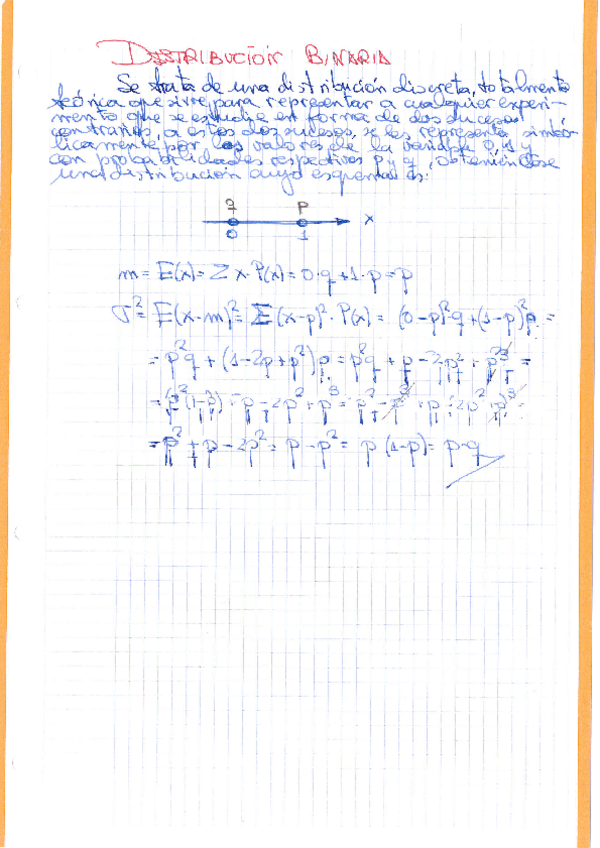 DISTRIBUCIÓN BINARIA
Se trata de una distribución discreta, totalmente
teórica que sirve para representar a cualquier experi-
mento que se estudie en forma de dos sucesos
contrarios, a estos dos sucesos, se les representa simbó-
licamente por los valores de la variable 0, 1 y
con probabilidades respectivas p y q, obteniéndose
una distribución cuyo esquema es:
q p
0 1 x
m = E(x) = Σ x · P(x) = 0·q + 1·p = p
σ² = E(x-m)² = Σ(x-p)² · P(x) = (0-p)²·q + (1-p)²p =
= p²q + (1-2p+p²)p = p²q + p - 2p² + p³ =
= p² + p - 2p² = p - p² = p(1-p) = p·q